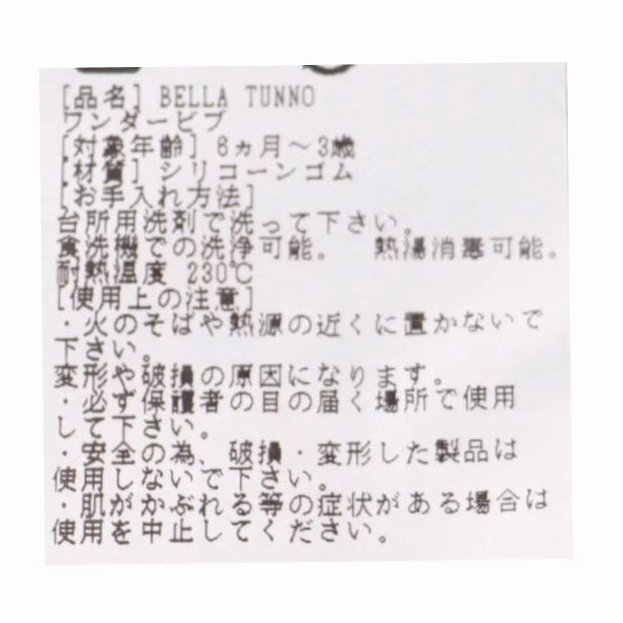 [品名] BELLA TUNNO
ワンダービブ
[対象年齢] 6ヵ月～3歳
[材質] シリコーンゴム
[お手入れ方法]
台所用洗剤で洗って下さい。
食洗機での洗浄可能。 熱湯消毒可能。
耐熱温度 230℃
[使用上の注意]
・火のそばや熱源の近くに置かないで
下さい。
変形や破損の原因になります。
・必ず保護者の目の届く場所で使用
して下さい。
・安全の為、破損・変形した製品は
使用しないで下さい。
・肌がかぶれる等の症状がある場合は
使用を中止してください。